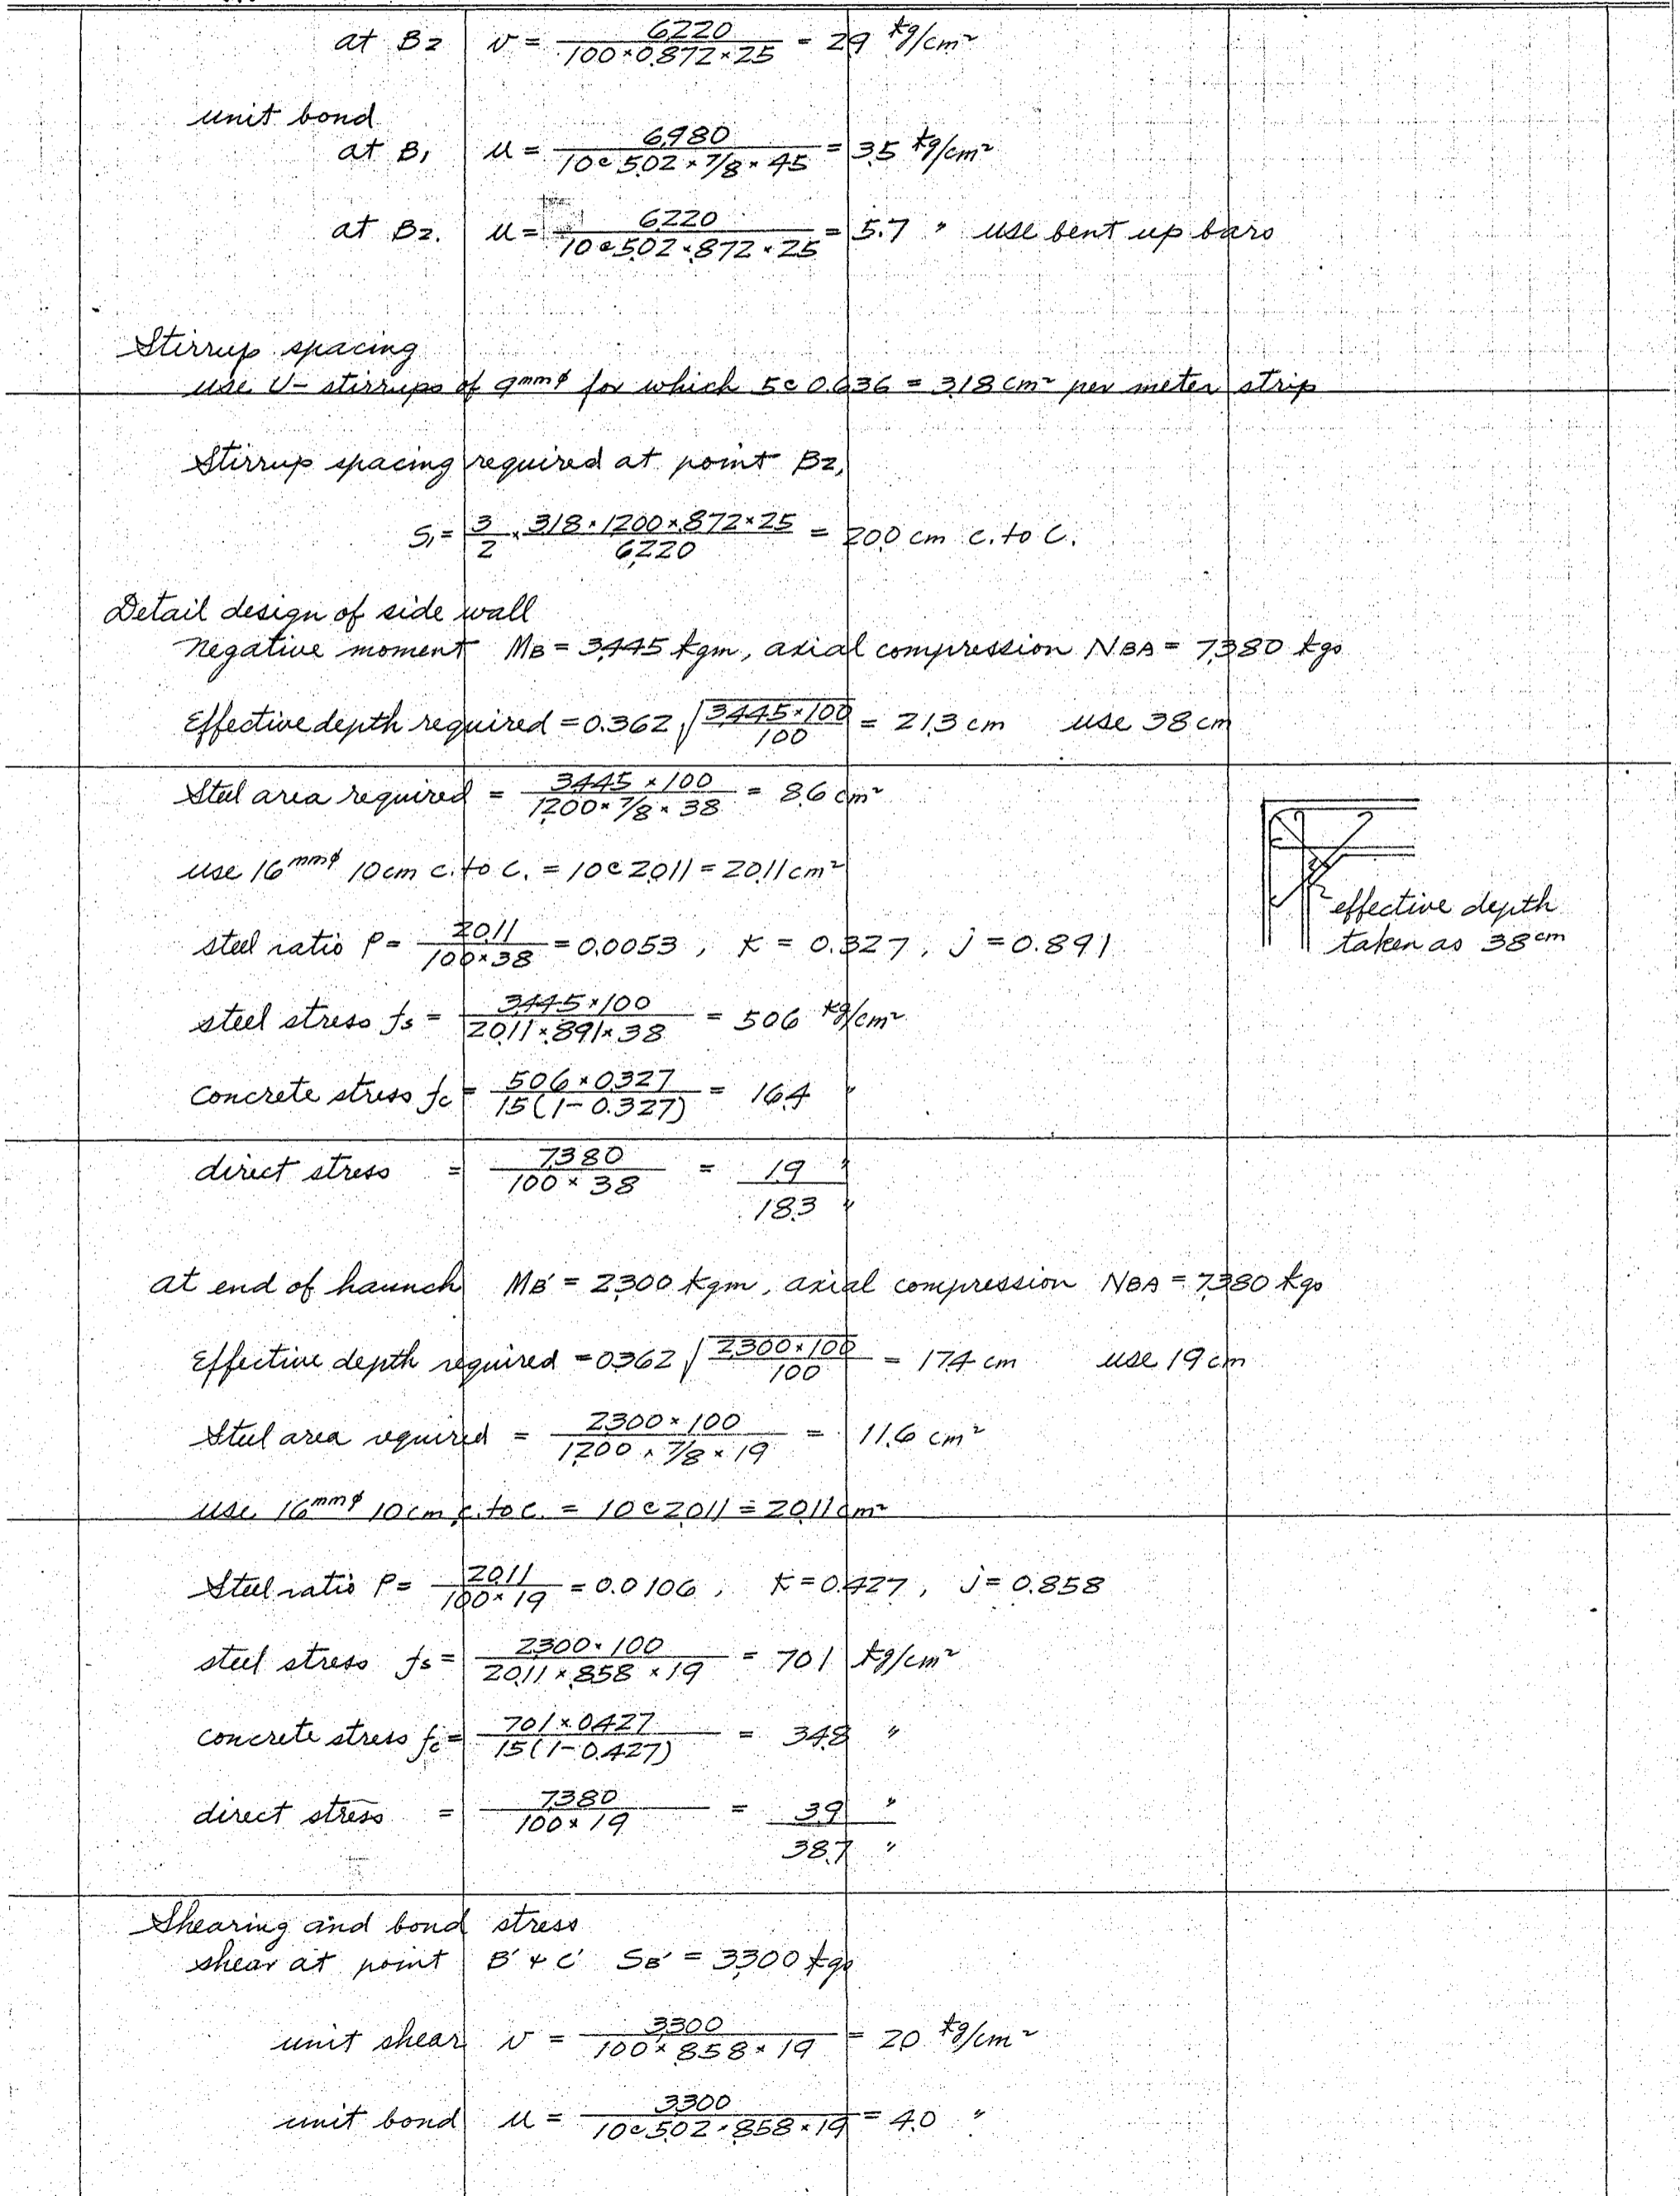 at B2 v = 6,220 / 100×0.872×25 = 2.9 kg/cm²
unit bond
at B1 u = 6,980 / 10@5.02×7/8×45 = 3.5 kg/cm²
at B2. u = 6,220 / 10@5.02×.872×25 = 5.7 " use bent up bars
Stirrup spacing
use U- stirrups of 9mmφ for which 5@0.636 = 3.18 cm² per meter strip
Stirrup spacing required at point B2,
S1 = 3/2 × 3.18×1,200×.872×25 / 6,220 = 20.0 cm c. to c.
Detail design of side wall
Negative moment MB = 3,445 kgm, axial compression NBA = 7,380 kgs
Effective depth required = 0.362 √(3,445×100 / 100) = 21.3 cm use 38 cm
Steel area required = 3,445 × 100 / 1,200×7/8×38 = 8.6 cm²
use 16mmφ 10cm c. to c. = 10@2.011 = 20.11 cm²
steel ratio P = 20.11 / 100×38 = 0.0053, K = 0.327, j = 0.891
effective depth
taken as 38cm
steel stress fs = 3,445×100 / 20.11×.891×38 = 506 kg/cm²
concrete stress fc = 506×0.327 / 15(1-0.327) = 16.4 "
direct stress = 7,380 / 100×38 = 1.9 "
18.3 "
at end of haunch MB' = 2,300 kgm, axial compression NBA = 7,380 kgs
Effective depth required = 0.362 √(2,300×100 / 100) = 17.4 cm use 19 cm
Steel area required = 2,300×100 / 1,200×7/8×19 = 11.6 cm²
use 16mmφ 10cm c. to c. = 10@2.011 = 20.11 cm²
Steel ratio P = 20.11 / 100×19 = 0.0106, K = 0.427, j = 0.858
steel stress fs = 2,300×100 / 20.11×.858×19 = 701 kg/cm²
concrete stress fc = 701×0.427 / 15(1-0.427) = 34.8 "
direct stress = 7,380 / 100×19 = 3.9 "
38.7 "
Shearing and bond stress
shear at point B' & C' SB' = 3,300 kgs
unit shear v = 3,300 / 100×.858×19 = 2.0 kg/cm²
unit bond u = 3,300 / 10@5.02×.858×19 = 4.0 "